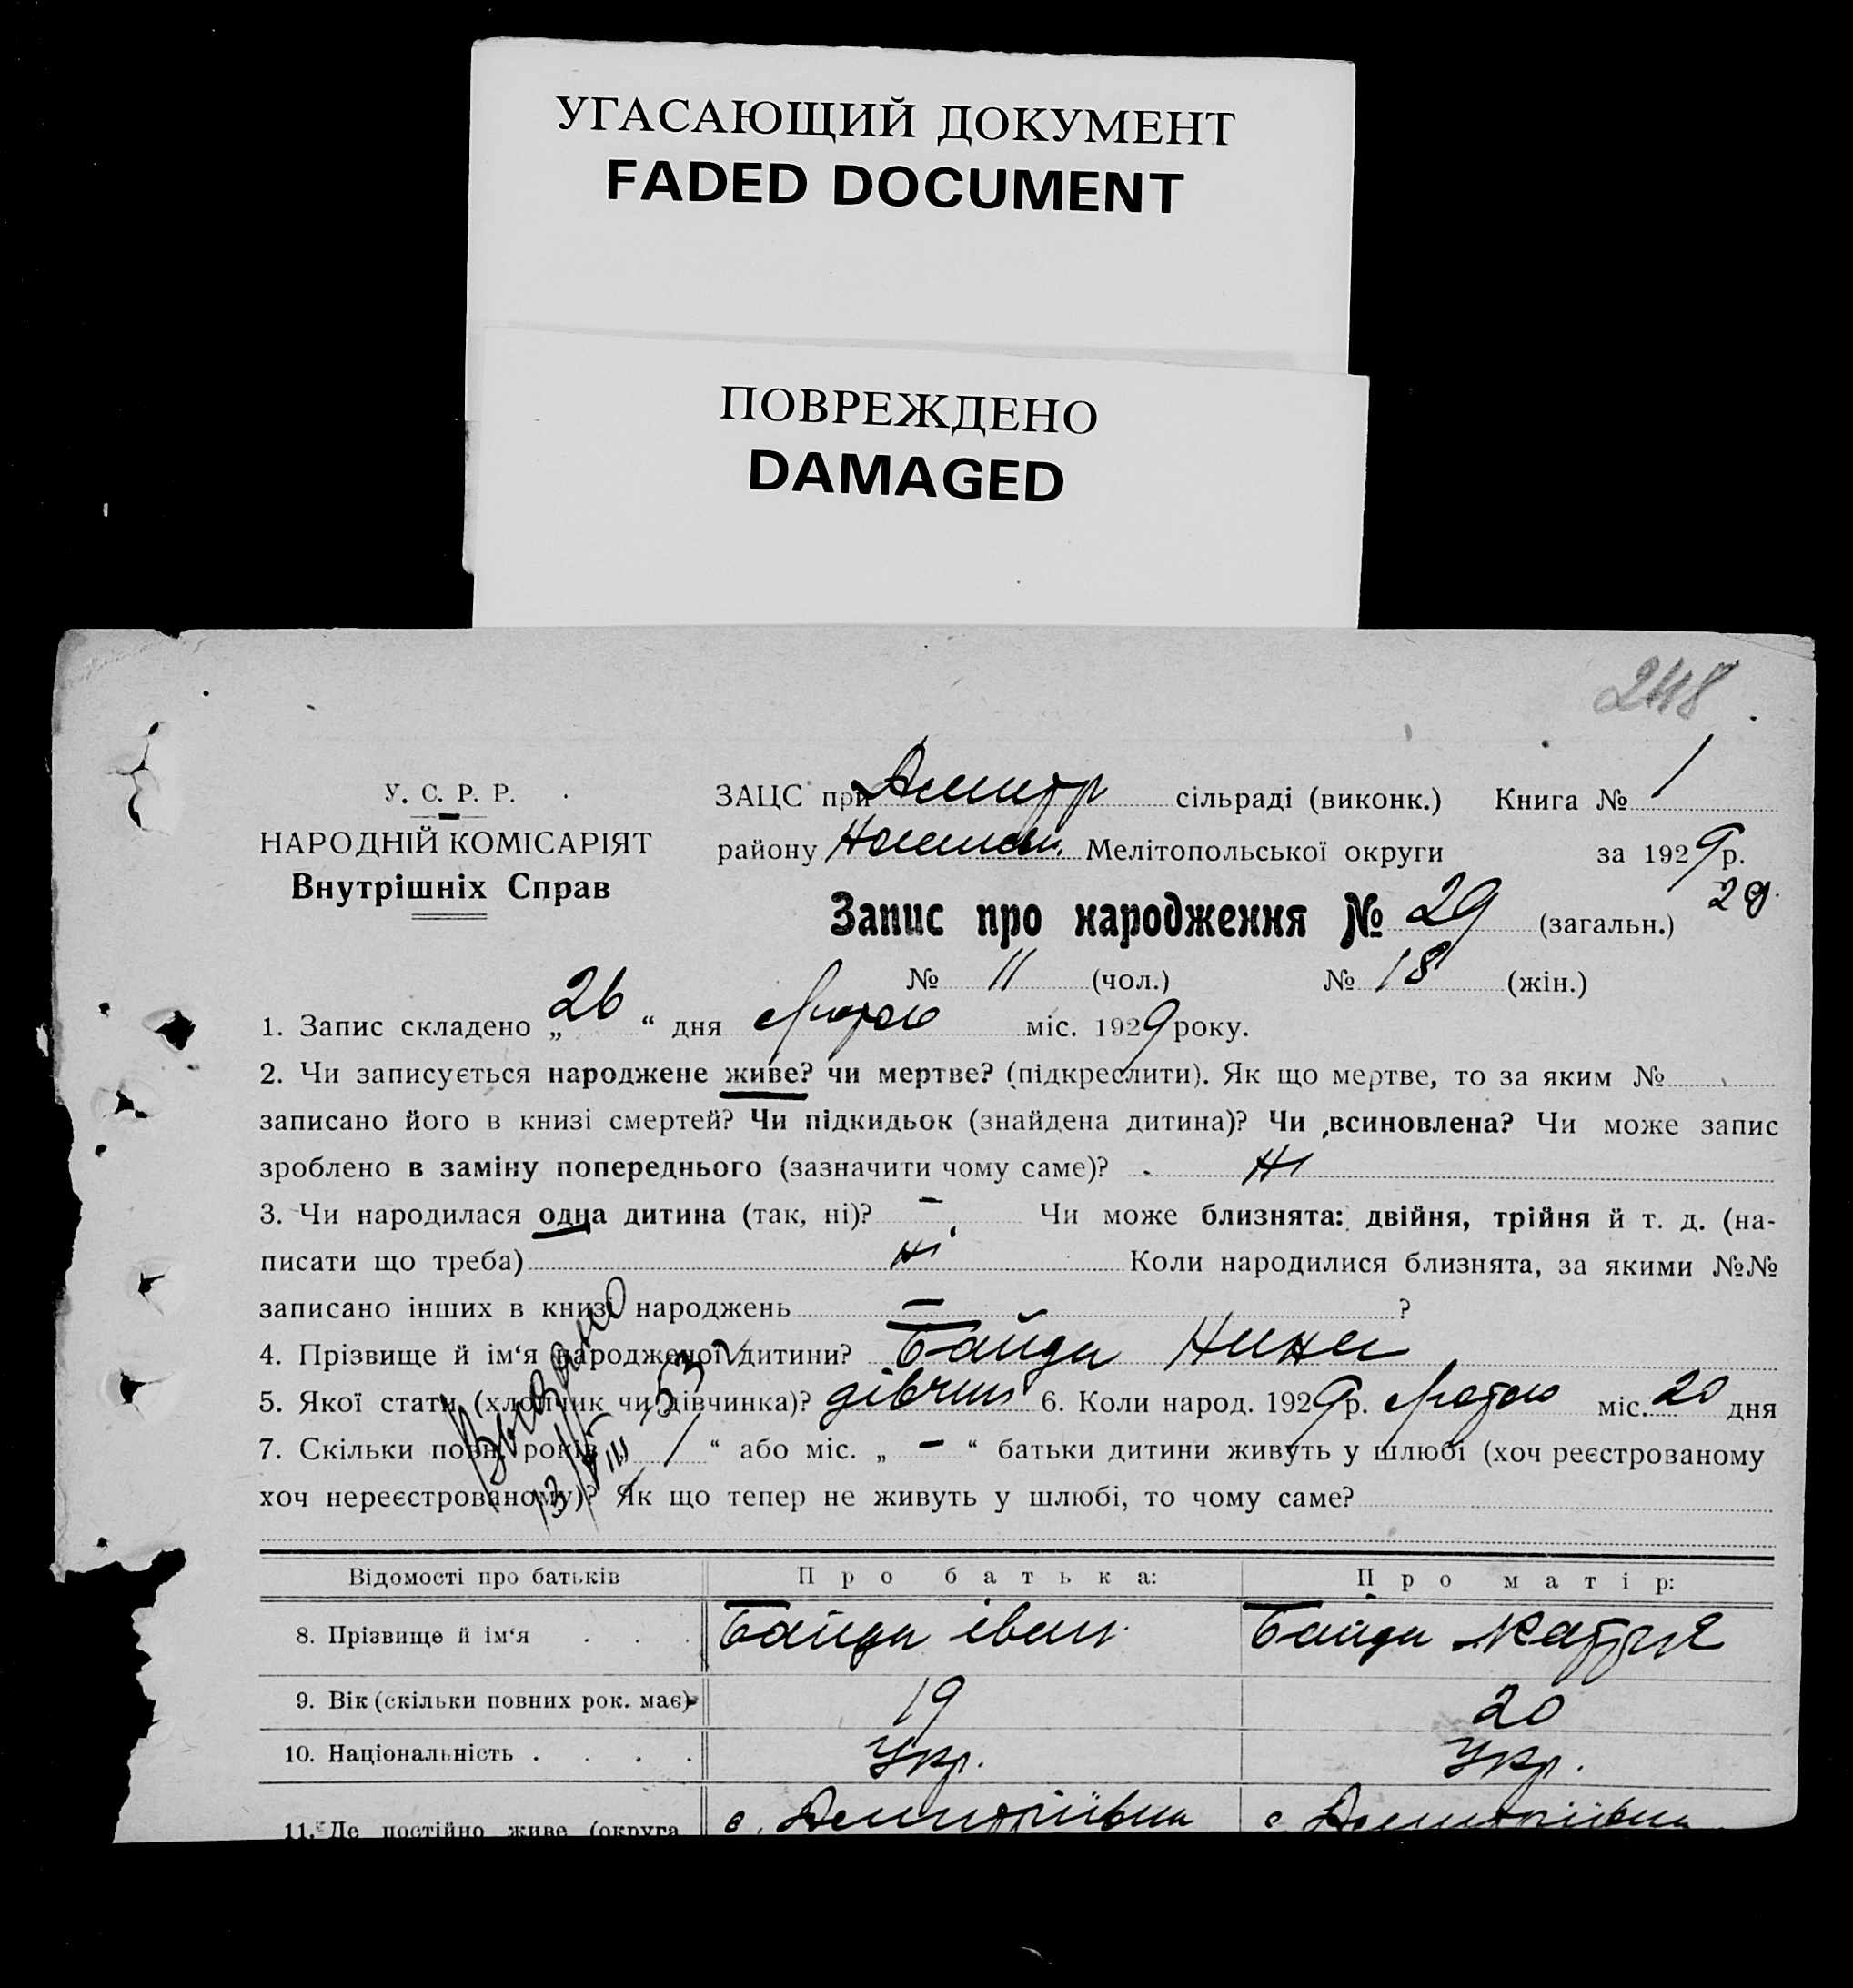 УГАСАЮЩИЙ ДОКУМЕНТ
FADED DOCUMENT
ПОВРЕЖДЕНО
DAMAGED
248
У. С. Р. Р.
НАРОДНІЙ КОМІСАРІЯТ
Внутрішніх Справ
ЗАЦС при Дмитр сільраді (виконк.) Книга № 1
району Мелітопольської округи за 1929 р.
29
Запис про народження № 29 (загальн.)
№ 11 (чол.) № 18 (жін.)
1. Запис складено „26“ дня лютого міс. 1929 року.
2. Чи записується народжене живе? чи мертве? (підкреслити). Як що мертве, то за яким №
записано його в книзі смертей? Чи підкидьок (знайдена дитина)? Чи всиновлена? Чи може запис
зроблено в заміну попереднього (зазначити чому саме)? Ні
3. Чи народилася одна дитина (так, ні)? – Чи може близнята: двійня, трійня й т. д. (на-
писати що треба) ні Коли народилися близнята, за якими №№
записано інших в книзі народжень – ?
4. Прізвище й ім‘я народженої дитини? Байда Нина
5. Якої стати (хлопчик чи дівчинка)? дівчин 6. Коли народ. 1929 р. лютого міс. 20 дня
7. Скільки повн. років „ 1 “ або міс. „ – “ батьки дитини живуть у шлюбі (хоч реєстрованому
хоч нереєстрованому)? Як що тепер не живуть у шлюбі, то чому саме?
Видано
Відомості про батьків Про батька: Про матір:
8. Прізвище й ім‘я . . . Байда Іван Байда
9. Вік (скільки повних рок. має) 19 20
10. Національність . . . . Укр. Укр.
11. Де постійно живе (округа с. Дмитріївка с. Дмитріївка